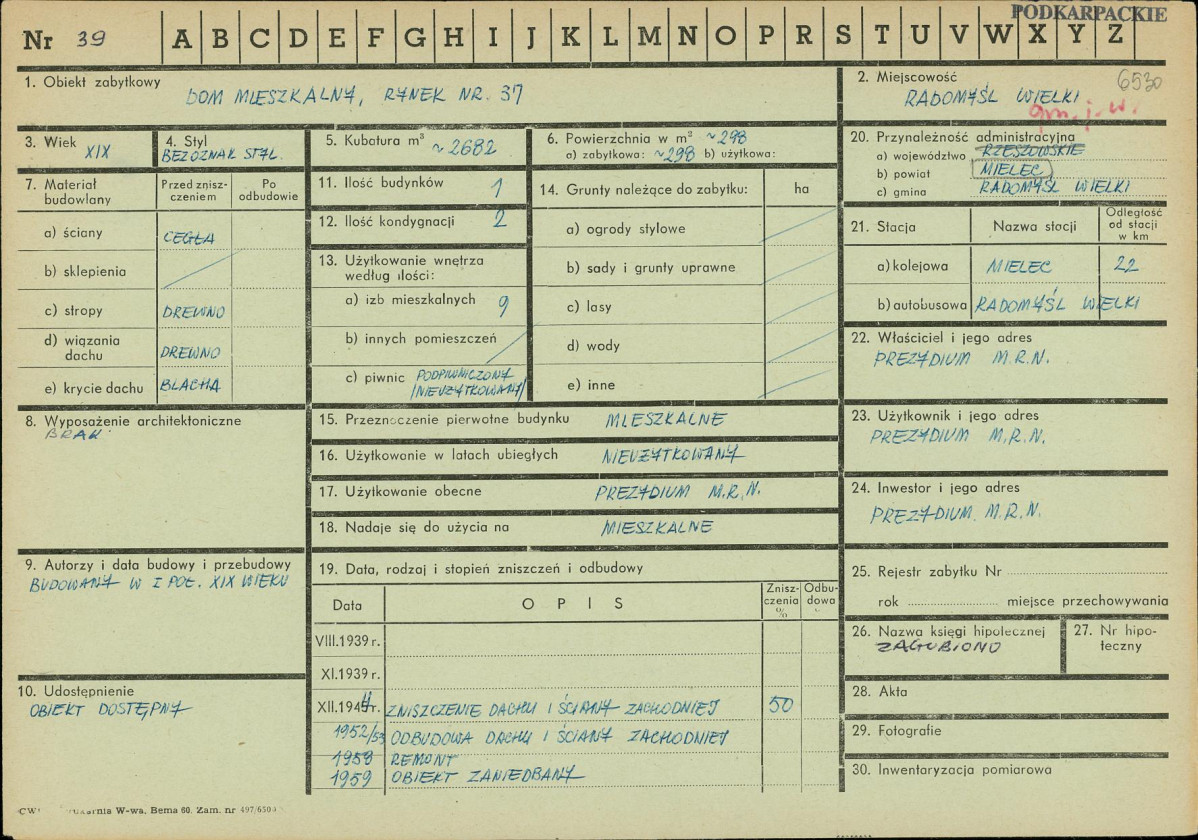 PODKARPACKIE
Nr 39 A B C D E F G H I J K L M N O P R S T U V W X Y Z
1. Obiekt zabytkowy
DOM MIESZKALNY, RYNEK NR. 37
2. Miejscowość 6530
RADOMYŚL WIELKI
gm. j. w.
3. Wiek
XIX
4. Styl
BEZ OZNAK STYL.
5. Kubatura m³
~ 2682
6. Powierzchnia w m² ~298
a) zabytkowa: ~298 b) użytkowa:
20. Przynależność administracyjna
a) województwo RZESZOWSKIE
b) powiat MIELEC
c) gmina RADOMYŚL WIELKI
7. Materiał budowlany
Przed znisz-
czeniem
Po
odbudowie
a) ściany CEGŁA
b) sklepienia
c) stropy DREWNO
d) wiązania
dachu DREWNO
e) krycie dachu BLACHA
11. Ilość budynków 1
12. Ilość kondygnacji 2
13. Użytkowanie wnętrza
według ilości:
a) izb mieszkalnych 9
b) innych pomieszczeń
c) piwnic PODPIWNICZONY
/NIEUŻYTKOWANY/
14. Grunty należące do zabytku: ha
a) ogrody stylowe
b) sady i grunty uprawne
c) lasy
d) wody
e) inne
21. Stacja Nazwa stacji
Odległość
od stacji
w km
a) kolejowa MIELEC 22
b) autobusowa RADOMYŚL WIELKI
22. Właściciel i jego adres
PREZYDIUM M.R.N.
8. Wyposażenie architektoniczne
BRAK
15. Przeznaczenie pierwotne budynku MIESZKALNE
16. Użytkowanie w latach ubiegłych NIEUŻYTKOWANY
17. Użytkowanie obecne PREZYDIUM M.R.N.
18. Nadaje się do użycia na MIESZKALNE
23. Użytkownik i jego adres
PREZYDIUM M.R.N.
24. Inwestor i jego adres
PREZYDIUM M.R.N.
9. Autorzy i data budowy i przebudowy
BUDOWANY W I POŁ. XIX WIEKU
10. Udostępnienie
OBIEKT DOSTĘPNY
19. Data, rodzaj i stopień zniszczeń i odbudowy
Data OPIS
Znisz-
czenia
%
Odbu-
dowa
VIII.1939 r.
XI.1939 r.
XII.1944 r. ZNISZCZENIE DACHU I ŚCIANY ZACHODNIEJ 50
1952/53 ODBUDOWA DACHU I ŚCIANY ZACHODNIEJ
1958 REMONT
1959 OBIEKT ZANIEDBANY
25. Rejestr zabytku Nr
rok miejsce przechowywania
26. Nazwa księgi hipotecznej
ZAGUBIONO
27. Nr hipo-
teczny
28. Akta
29. Fotografie
30. Inwentaryzacja pomiarowa
W-wa, Bema 60. Zam. nr 497/650